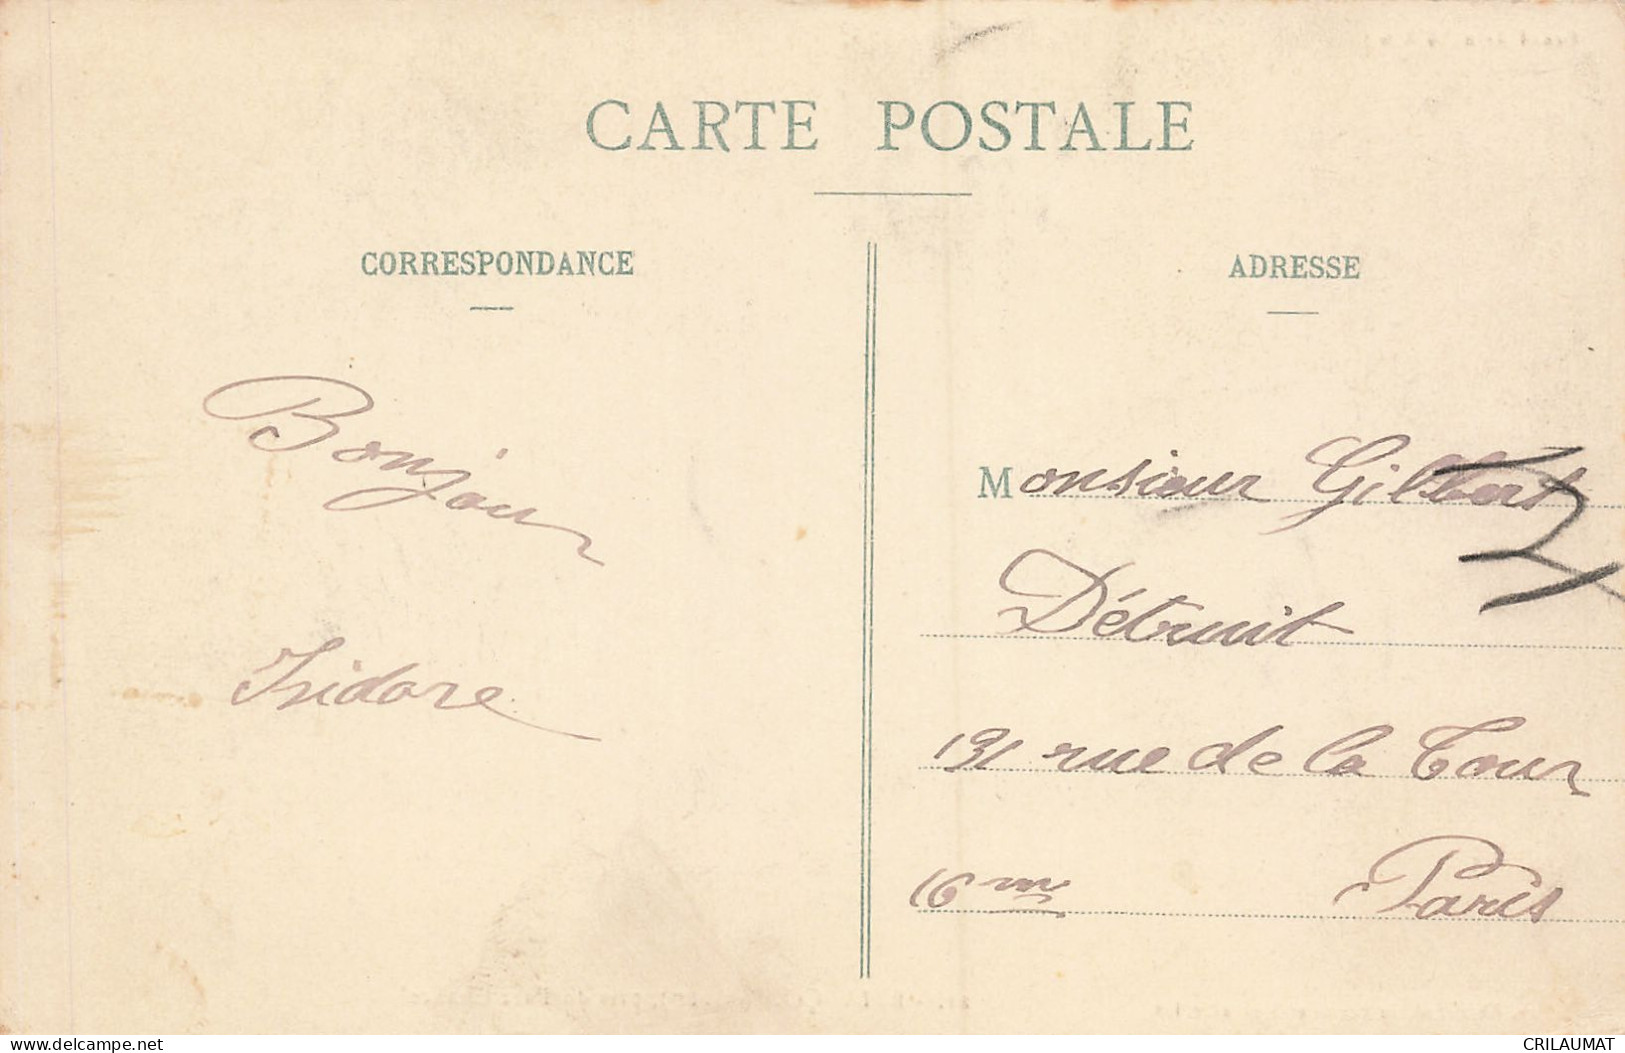 CARTE POSTALE
CORRESPONDANCE
ADRESSE
Bonjour
Isidore
Monsieur Gilbert
Détruit
131 rue de la Tour
16me Paris
www.delcampe.net
CRILAUMAT